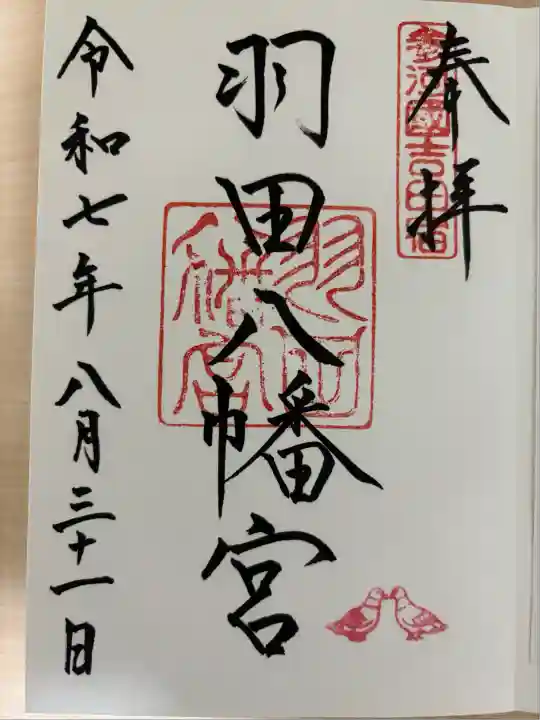 奉拝
羽田八幡宮
令和七年八月三十一日